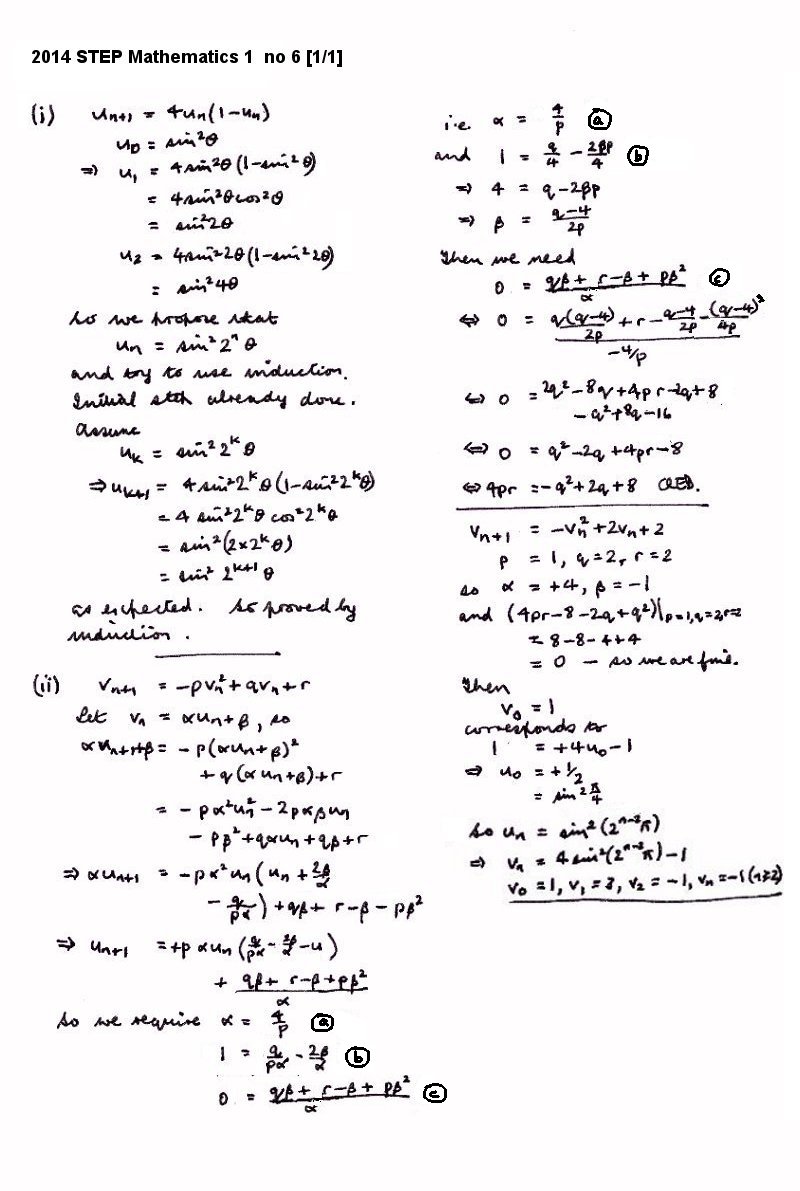 2014 STEP Mathematics 1 no 6 [1/1]
(i) u_{n+1} = 4u_n(1-u_n)
u_0 = sin²θ
⇒ u_1 = 4sin²θ(1-sin²θ)
= 4sin²θcos²θ
= sin²2θ
u_2 = 4sin²2θ(1-sin²2θ)
= sin²4θ
So we propose that
u_n = sin²2ⁿθ
and try to use induction.
Initial step already done.
Assume
u_k = sin²2^kθ
⇒ u_{k+1} = 4sin²2^kθ(1-sin²2^kθ)
= 4 sin²2^kθ cos²2^kθ
= sin²(2×2^kθ)
= sin² 2^{k+1}θ
as expected. So proved by
induction.
(ii) v_{n+1} = -pv_n²+qv_n+r
Let v_n = αu_n+β, so
αu_{n+1}+β = -p(αu_n+β)²
+q(αu_n+β)+r
= -pα²u_n²-2pαβu_n
-pβ²+qαu_n+qβ+r
⇒ αu_{n+1} = -pα²u_n(u_n+2β/α
-q/pα)+qβ+r-β-pβ²
⇒ u_{n+1} = +pαu_n(q/pα-2β/α-u)
+ (qβ+r-β+pβ²)/α
So we require α = 4/p ⓐ
1 = q/pα-2β/α ⓑ
0 = (qβ+r-β+pβ²)/α ⓒ
i.e. α = 4/p ⓐ
and 1 = q/4-2βp/4 ⓑ
⇒ 4 = q-2βp
⇒ β = (q-4)/2p
Then we need
0 = (qβ+r-β+pβ²)/α ⓒ
⇔ 0 = (q(q-4)/2p+r-(q-4)/2p-(q-4)²/4p)/(-4/p)
⇔ 0 = 2q²-8q+4pr-2q+8
-q²+8q-16
⇔ 0 = q²-2q+4pr-8
⇔ 4pr = -q²+2q+8 QED.
v_{n+1} = -v_n²+2v_n+2
p = 1, q=2, r=2
so α = +4, β=-1
and (4pr-8-2q+q²)|_{p=1,q=2,r=2}
= 8-8-4+4
= 0 — so we are fine.
Then
v_0 = 1
corresponds to
1 = +4u_0-1
⇒ u_0 = +½
= sin² π/4
So u_n = sin²(2^{n-2}π)
⇒ v_n = 4sin²(2^{n-2}π)-1
v_0=1, v_1=3, v_2=-1, v_n=-1(n≥2)